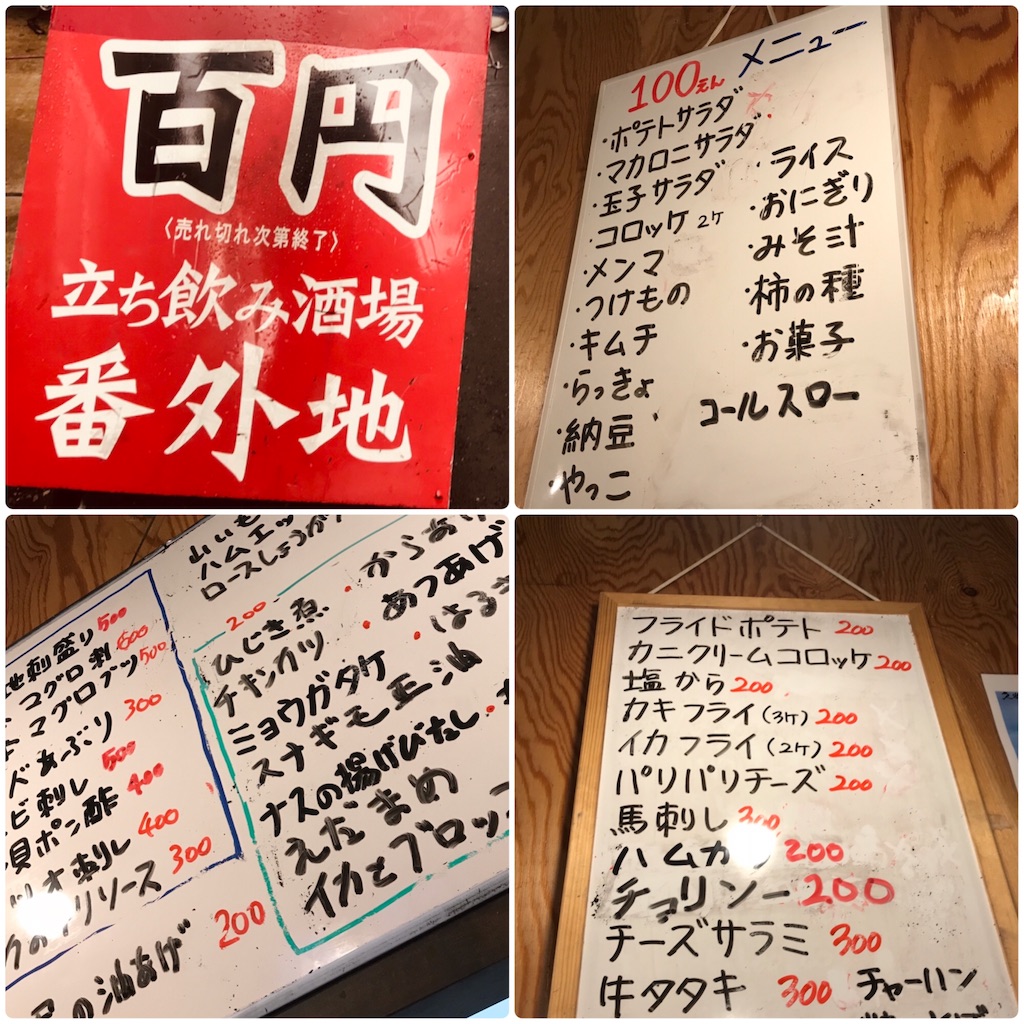 百円
〈売れ切れ次第終了〉
立ち飲み酒場
番外地
100えん メニュー
・ポテトサラダ
・マカロニサラダ
・玉子サラダ
・コロッケ 2ケ
・メンマ
・つけもの
・キムチ
・らっきょ
・納豆
・やっこ
・ライス
・おにぎり
・みそ汁
・柿の種
・お菓子
コールスロー
ハムエッ
ロースしょうが
刺盛り 500
マグロ刺 600
マグロブツ 500
あぶり 300
刺し 500
貝ポン酢 400
刺し 400
ソース 300
の油あげ 200
200
ひじき煮
チキンカツ
ミョウガタケ
スナギモ正油
ナスの揚げびたし
えだまめ
イカとブロッ
・からあ
・あつあげ
・はるま
フライドポテト 200
カニクリームコロッケ 200
塩から 200
カキフライ(3ケ) 200
イカフライ(2ケ) 200
パリパリチーズ 200
馬刺し 300
ハムカツ 200
チョリソー 200
チーズサラミ 300
牛タタキ 300
チャーハン